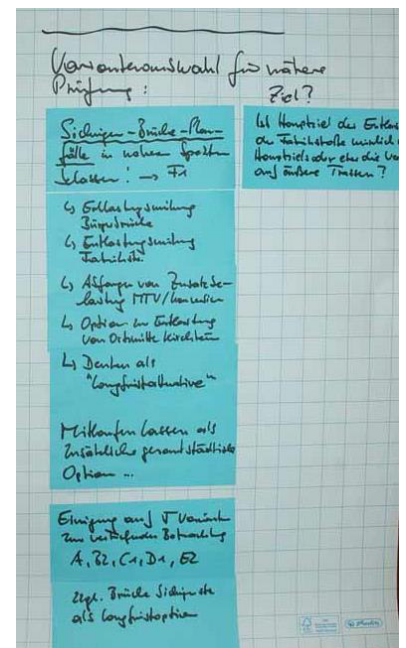 Variantenauswahl für nähere
Prüfung:
Ziel?
Sickinger-Brücke-Plan-
fälle in hohen Spalten
lassen! → F1
↳ Entlastungswirkung
Bürgerbrücke
↳ Entlastungswirkung
Fabrikstr.
↳ Abfangen von Zusatzbe-
lastung MTV/
↳ Option zur Entlastung
von Ortsmitte
↳ Denken als
"Langfristalternative"
Mitlaufen lassen als
zusätzliche gesamtstädtische
Option ...
Einigung auf 5 Varianten
zur vertiefenden Betrachtung
A, B2, C1, D1, E2
zzgl. Brücke
als Langfristoption
Ist Hauptziel die Entlas
der Fabrikstraße wirklich
Hauptziel oder eher die Ve
auf äußere Trassen?